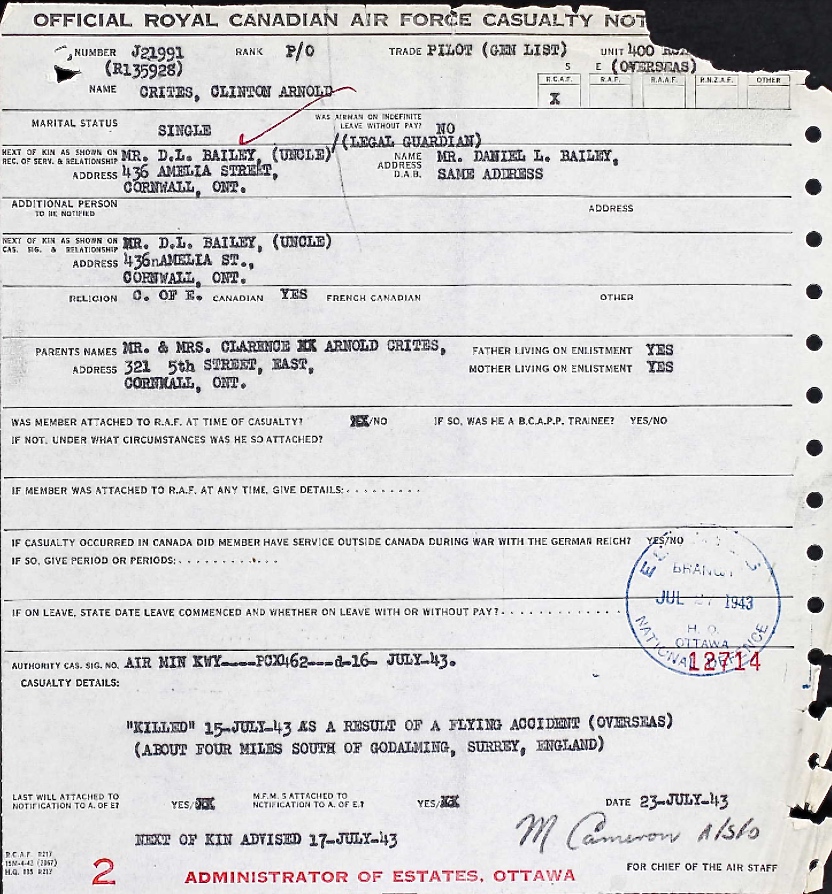 OFFICIAL ROYAL CANADIAN AIR FORCE CASUALTY NOT
NUMBER J21991 RANK P/O TRADE PILOT (GEN LIST) UNIT 400
(R135928) S E (OVERSEAS)
R.C.A.F. R.A.F. R.A.A.F. R.N.Z.A.F. OTHER
NAME CRITES, CLINTON ARNOLD X
MARITAL STATUS SINGLE WAS AIRMAN ON INDEFINITE LEAVE WITHOUT PAY? NO
(LEGAL GUARDIAN)
NEXT OF KIN AS SHOWN ON REC. OF SERV. & RELATIONSHIP MR. D.L. BAILEY, (UNCLE) NAME MR. DANIEL L. BAILEY,
ADDRESS 436 AMELIA STREET, ADDRESS D.A.B. SAME ADDRESS
CORNWALL, ONT.
ADDITIONAL PERSON TO BE NOTIFIED ADDRESS
NEXT OF KIN AS SHOWN ON CAS. SIG. & RELATIONSHIP MR. D.L. BAILEY, (UNCLE)
ADDRESS 436nAMELIA ST.,
CORNWALL, ONT.
RELIGION C. OF E. CANADIAN YES FRENCH CANADIAN OTHER
PARENTS NAMES MR. & MRS. CLARENCE XX ARNOLD CRITES, FATHER LIVING ON ENLISTMENT YES
ADDRESS 321 5th STREET, EAST, MOTHER LIVING ON ENLISTMENT YES
CORNWALL, ONT.
WAS MEMBER ATTACHED TO R.A.F. AT TIME OF CASUALTY? XXX/NO IF SO, WAS HE A B.C.A.P.P. TRAINEE? YES/NO
IF NOT, UNDER WHAT CIRCUMSTANCES WAS HE SO ATTACHED?
IF MEMBER WAS ATTACHED TO R.A.F. AT ANY TIME, GIVE DETAILS:.........
IF CASUALTY OCCURRED IN CANADA DID MEMBER HAVE SERVICE OUTSIDE CANADA DURING WAR WITH THE GERMAN REICH? YES/NO
IF SO, GIVE PERIOD OR PERIODS:...........
BRANCH
JUL 27 1943
H. Q.
OTTAWA
NATIONAL DEFENCE
IF ON LEAVE, STATE DATE LEAVE COMMENCED AND WHETHER ON LEAVE WITH OR WITHOUT PAY?..............
12714
AUTHORITY CAS. SIG. NO. AIR MIN KWY----PCX462---d-16- JULY-43.
CASUALTY DETAILS:
"KILLED" 15-JULY-43 AS A RESULT OF A FLYING ACCIDENT (OVERSEAS)
(ABOUT FOUR MILES SOUTH OF GODALMING, SURREY, ENGLAND)
LAST WILL ATTACHED TO NOTIFICATION TO A. OF E? YES/XX M.F.M. 5 ATTACHED TO NOTIFICATION TO A. OF E.? YES/XX DATE 23-JULY-43
NEXT OF KIN ADVISED 17-JULY-43 M Cameron A/S/O
R.C.A.F. R217
H.Q. 885 R217
2 ADMINISTRATOR OF ESTATES, OTTAWA FOR CHIEF OF THE AIR STAFF